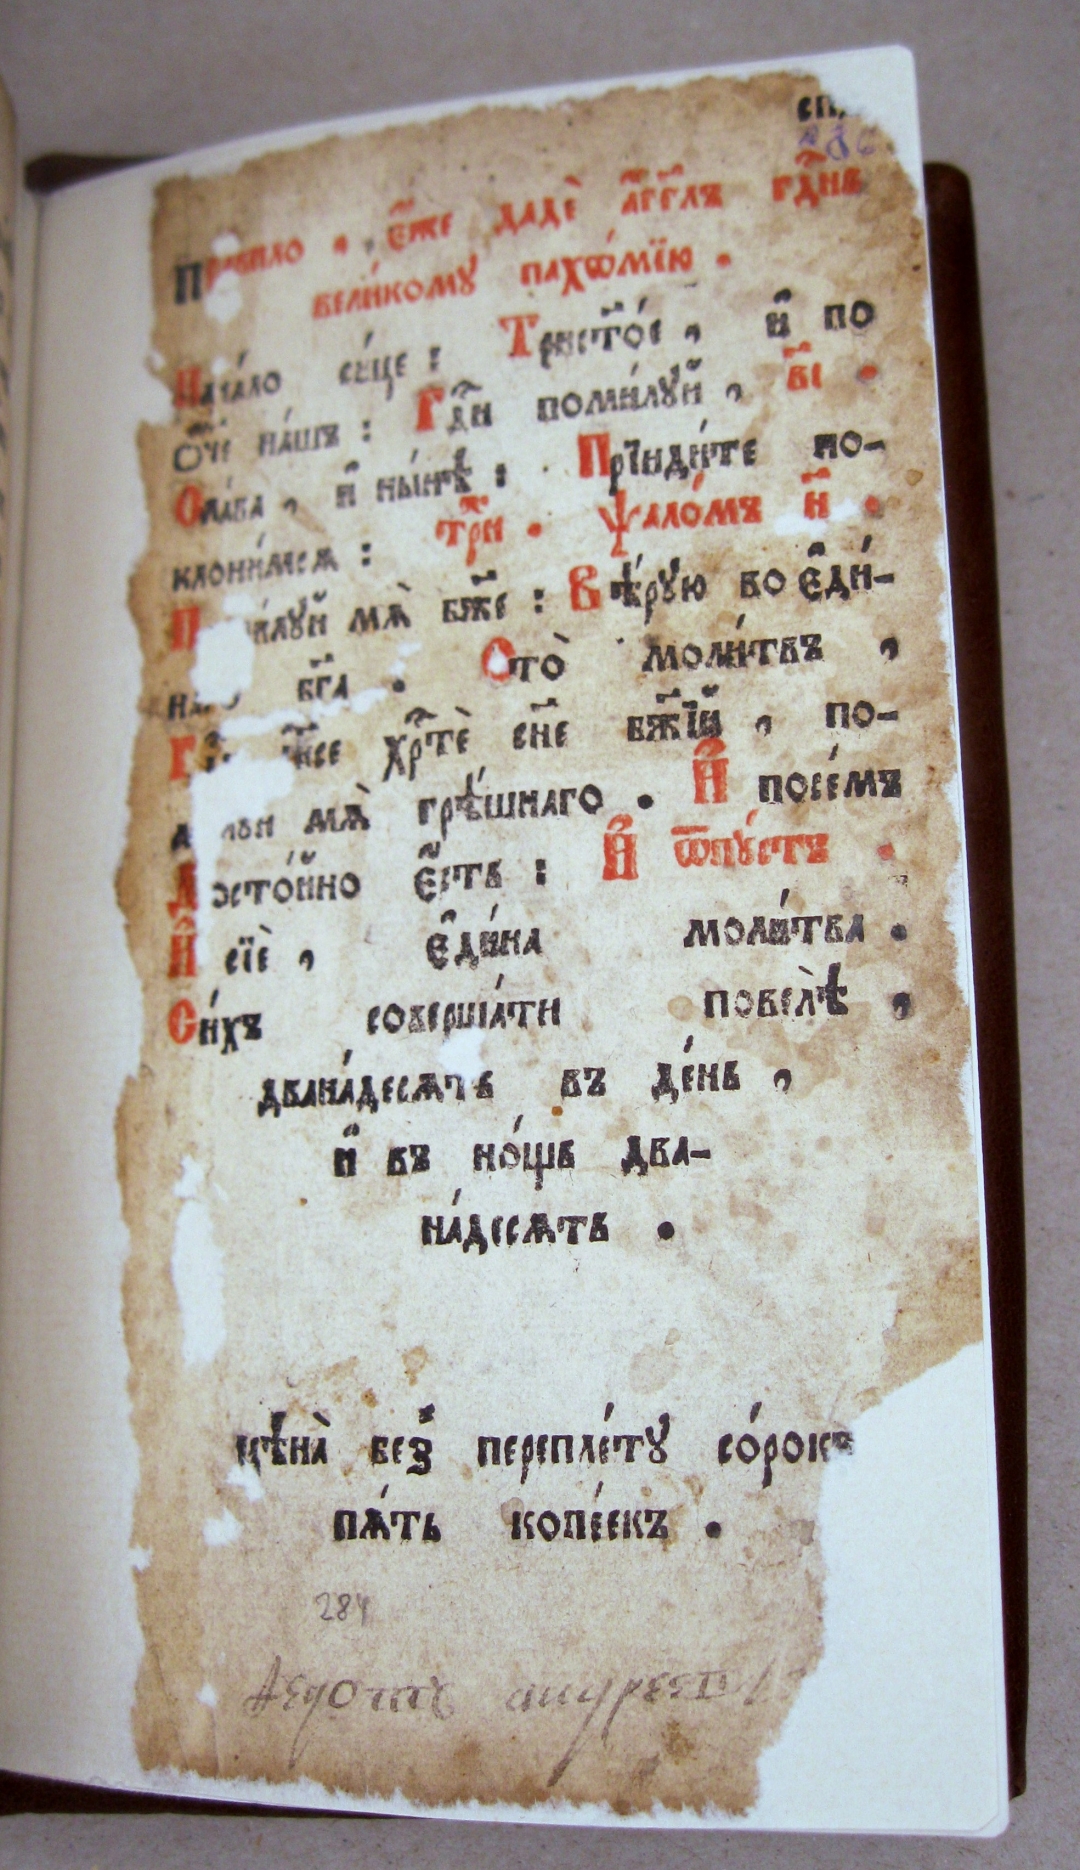 сп҃
286
Правило , є҆́же дадѐ а҆́гг҃лъ гдⷭ҇нь
вели́кому пахѡ́мїю .
Нача́ло си́це : Трист҃о́е , и҆ по
ѻ҆́ч҃е на́шъ : Гдⷭ҇и поми́луй , в҃і .
Сла́ва , и҆ ны́нѣ : Прїиди́те по-
клони́мсѧ : три . Ѱало́мъ н҃ .
мѧ̀ бж҃е : Вѣ́рую во є҆ди́-
бг҃а . Сто̀ моли́твъ ,
хрⷭ҇тѐ сн҃е бж҃їй , по-
мѧ̀ грѣ́шнаго . И҆ посе́мъ
Досто́йно є҆́сть : И҆ ѿпу́стъ .
И҆ сїѐ , є҆ди́на моли́тва .
Си́хъ соверша́ти повелѣ̀ ,
двана́десѧть въ де́нь ,
и҆ въ но́щь два-
на́десѧть .
цѣна̀ без̾ перепле́ту со́рокъ
пѧ́ть копе́екъ .
284
Ѳедотъ